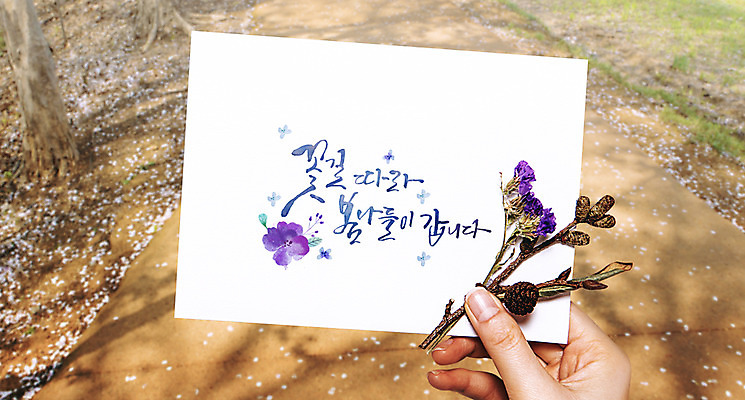 꽃길 따라
봄나들이 갑니다